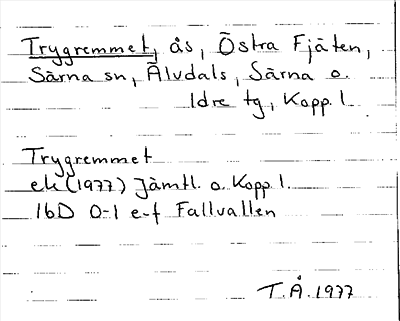 Trygremmet, ås, Östra Fjäten,
Särna sn, Älvdals, Särna o.
Idre tg, Kopp. l.
Trygremmet
ek (1977) Jämtl. o. Kopp l.
16D 0-1 e-f Fallvallen
T.Å. 1977